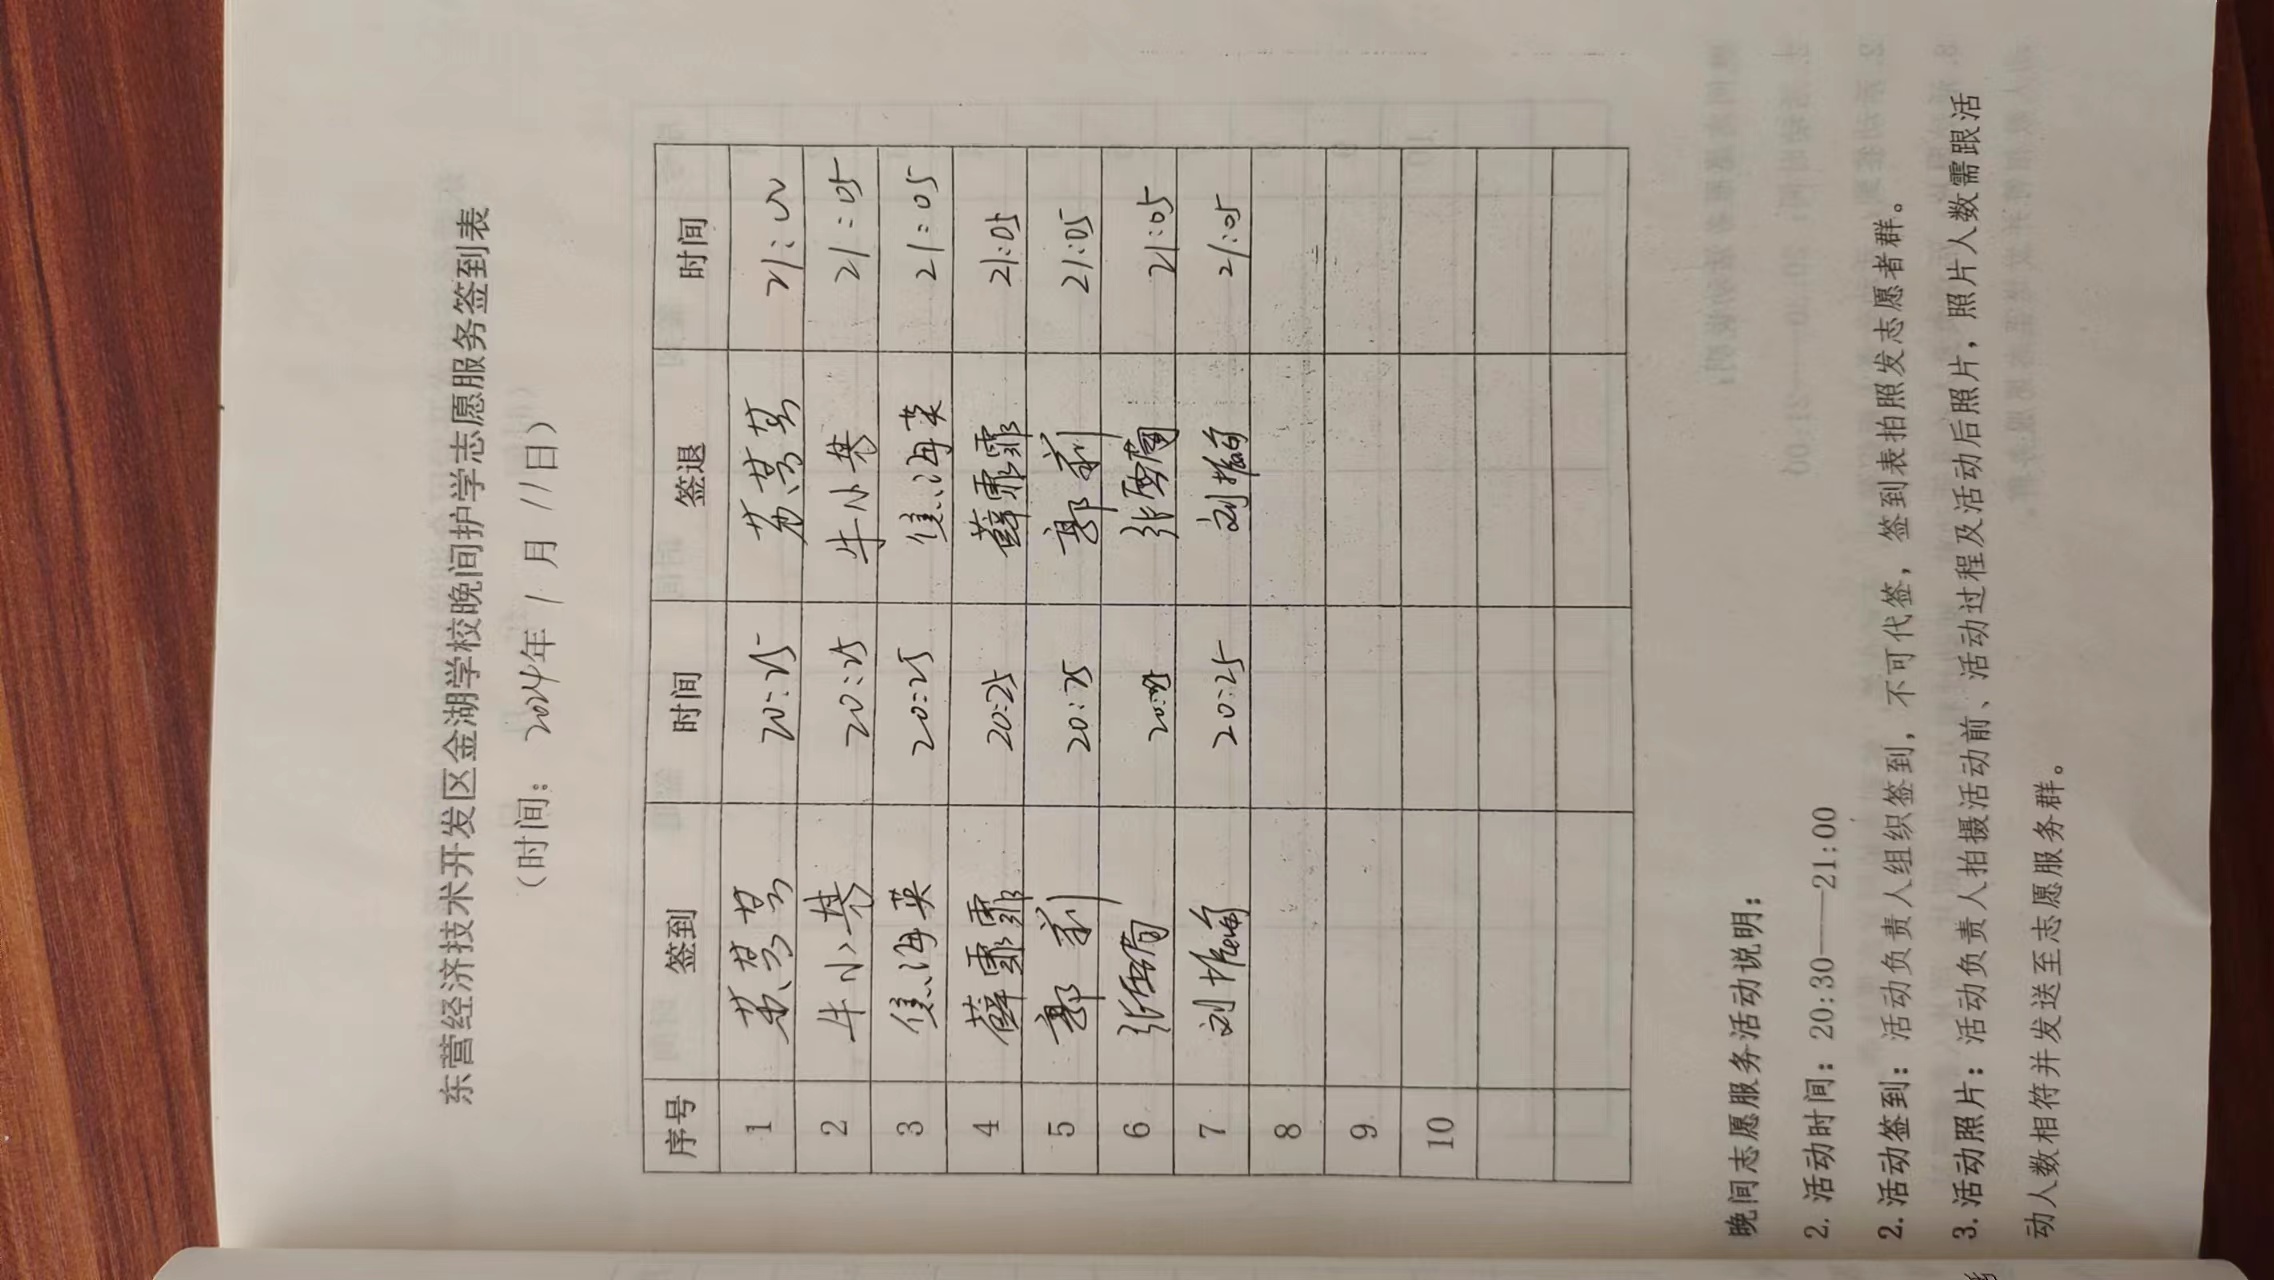 东营经济技术开发区金湖学校晚间护学志愿服务签到表
（时间：2024年1月11日）
序号 签到 时间 签退 时间
1 20:25 21:00
2 牛小巷 20:25 牛小巷 21:05
3 焦海英 20:25 焦海英 21:05
4 薛霏霏 20:25 薛霏霏 21:05
5 郭莉 20:25 郭莉 21:05
6 张 20:25 张 21:05
7 刘 20:25 刘 21:05
8
9
10
晚间志愿服务活动说明：
2. 活动时间：20:30——21:00
2. 活动签到：活动负责人组织签到，不可代签，签到表拍照发志愿者群。
3. 活动照片：活动负责人拍摄活动前、活动过程及活动后照片，照片人数需跟活
动人数相符并发送至志愿服务群。